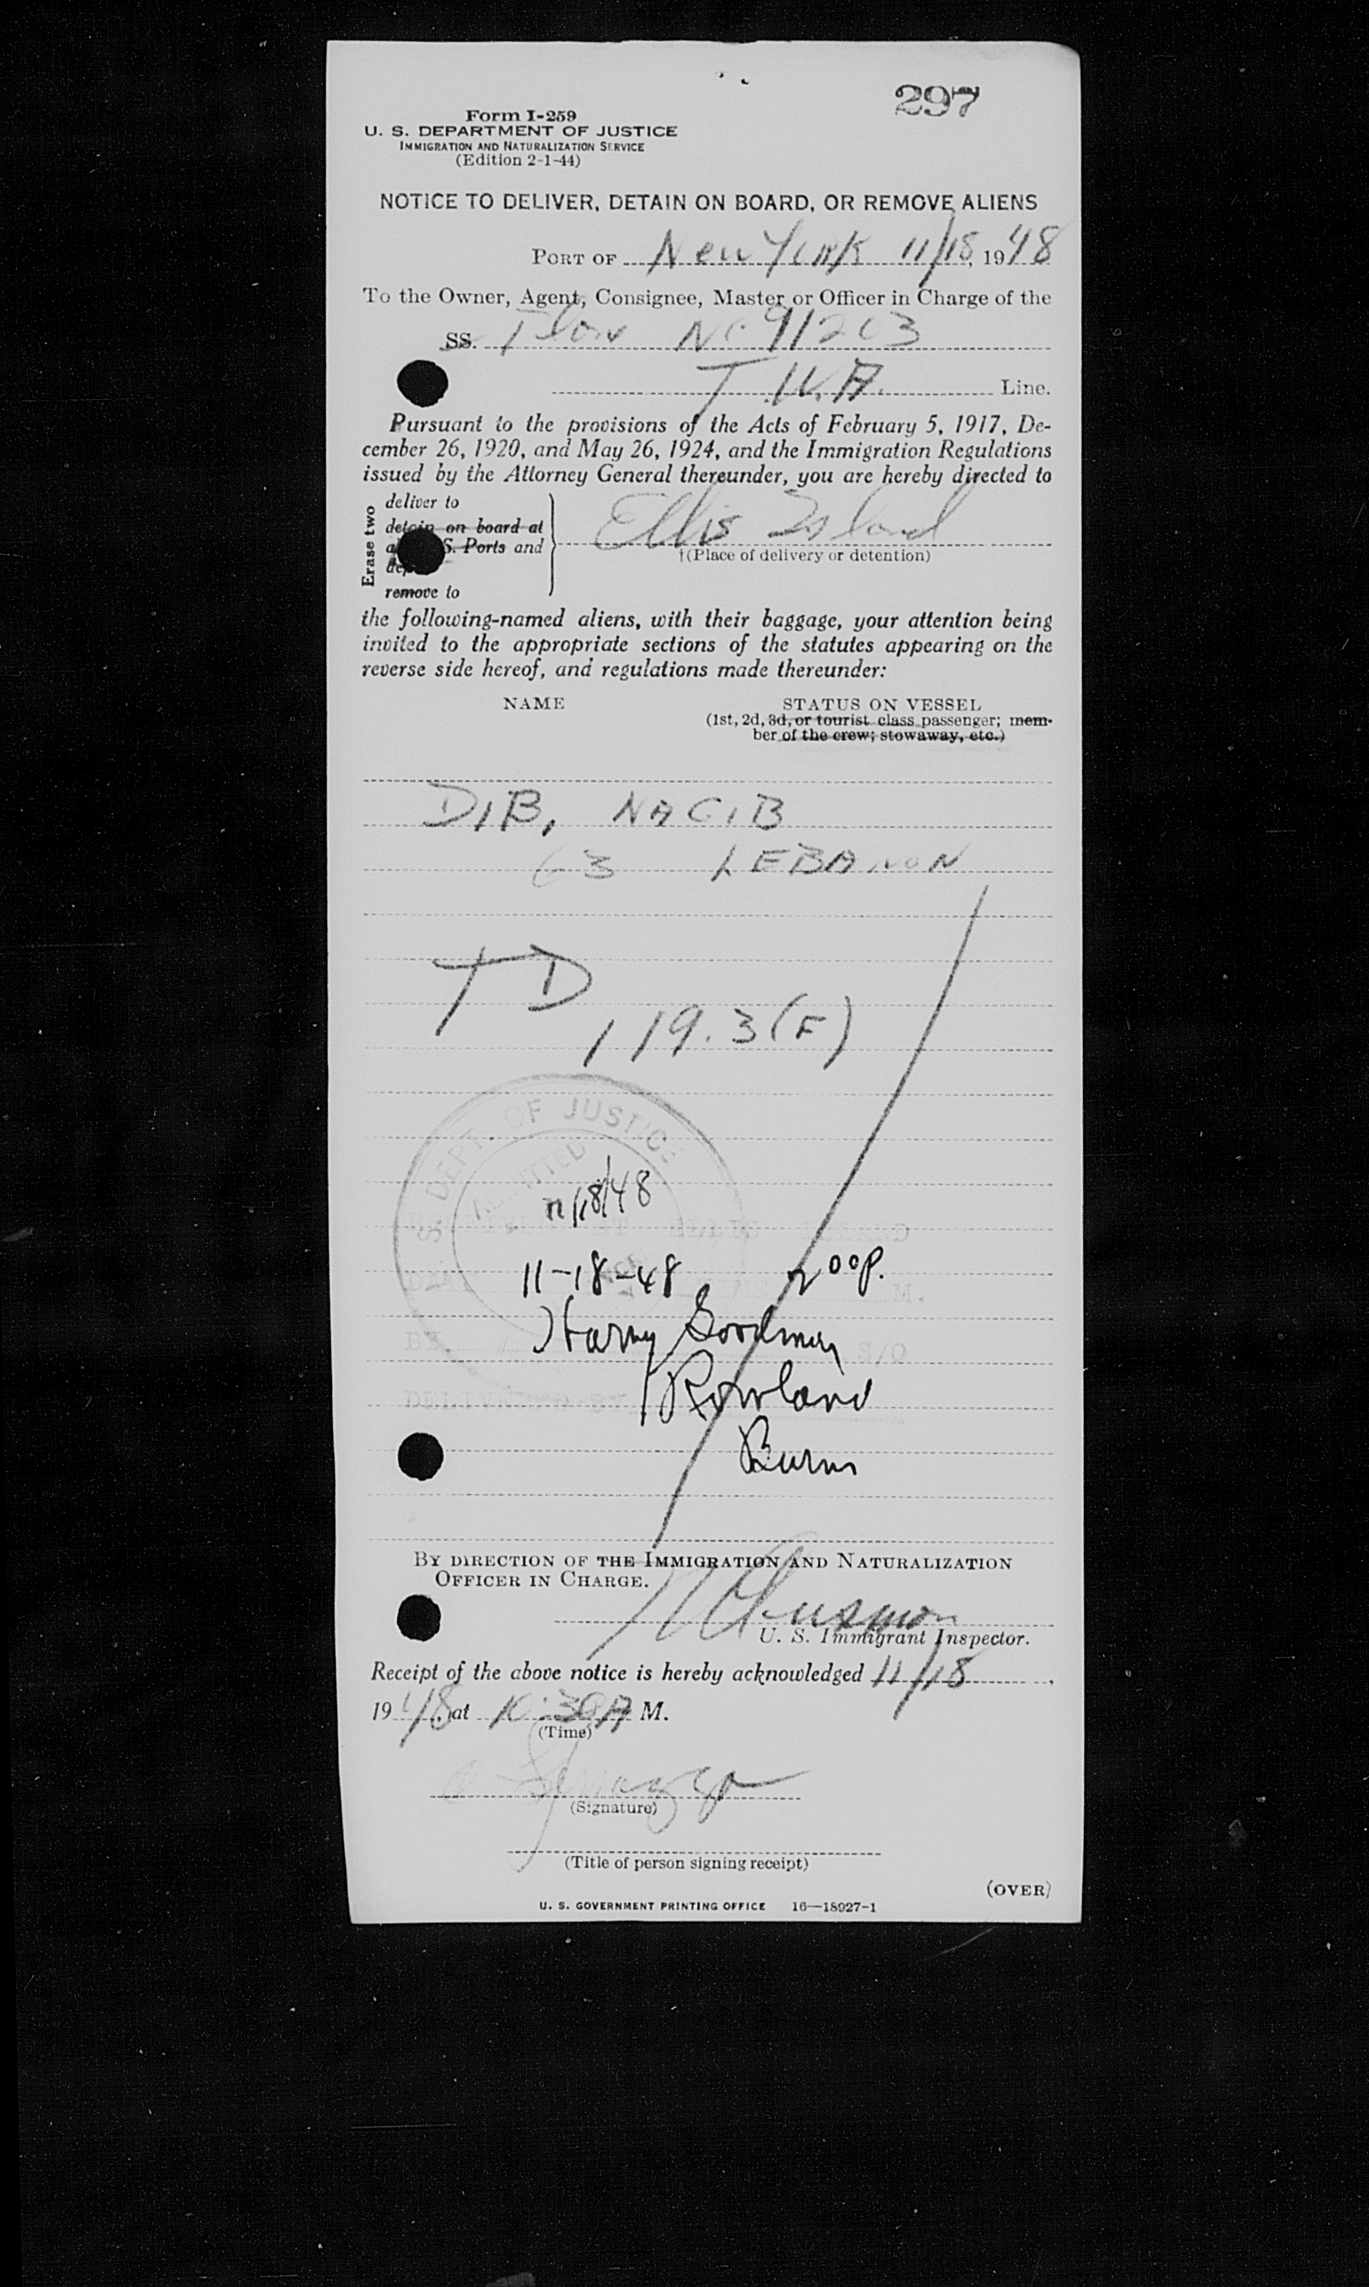 297
Form I-259
U. S. DEPARTMENT OF JUSTICE
IMMIGRATION AND NATURALIZATION SERVICE
(Edition 2-1-44)
NOTICE TO DELIVER, DETAIN ON BOARD, OR REMOVE ALIENS
PORT OF New York 11/18, 1948
To the Owner, Agent, Consignee, Master or Officer in Charge of the
SS. No 91203
T.W.A. Line.
Pursuant to the provisions of the Acts of February 5, 1917, De-
cember 26, 1920, and May 26, 1924, and the Immigration Regulations
issued by the Attorney General thereunder, you are hereby directed to
Erase two
deliver to
detain on board at
S. Ports and
remove to
Ellis Island
†(Place of delivery or detention)
the following-named aliens, with their baggage, your attention being
invited to the appropriate sections of the statutes appearing on the
reverse side hereof, and regulations made thereunder:
NAME STATUS ON VESSEL
(1st, 2d, 3d, or tourist class passenger; mem-
ber of the crew; stowaway, etc.)
DIB, NAGIB
63 LEBANON
TD
119.3(F)
S. DEPT. OF JUSTICE
ADMITTED
11/18/48
11-18-48 2 00 P.
Harry Goodman
Rowland
Burns
BY DIRECTION OF THE IMMIGRATION AND NATURALIZATION
OFFICER IN CHARGE.
U. S. Immigrant Inspector.
Receipt of the above notice is hereby acknowledged 11/18,
1948, at 10:30 A M.
(Time)
(Signature)
(Title of person signing receipt)
(OVER)
U. S. GOVERNMENT PRINTING OFFICE 16—18927-1